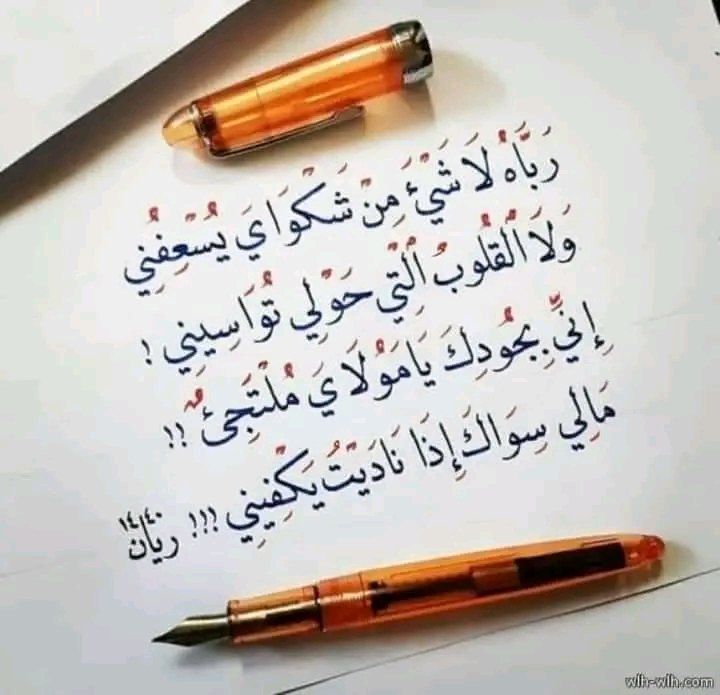 رَبَّاهُ لَا شَيْءَ مِنْ شَكْوَايَ يُسْعِفُنِي
وَلَا الْقُلُوبُ الَّتِي حَوْلِي تُوَاسِينِي !
إِنِّي بِجُودِكَ يَا مَوْلَايَ مُلْتَجِئٌ !!
مَالِي سِوَاكَ إِذَا نَادَيْتُ يَكْفِينِي !!! ريان ١٤٤٠
wlh-wlh.com